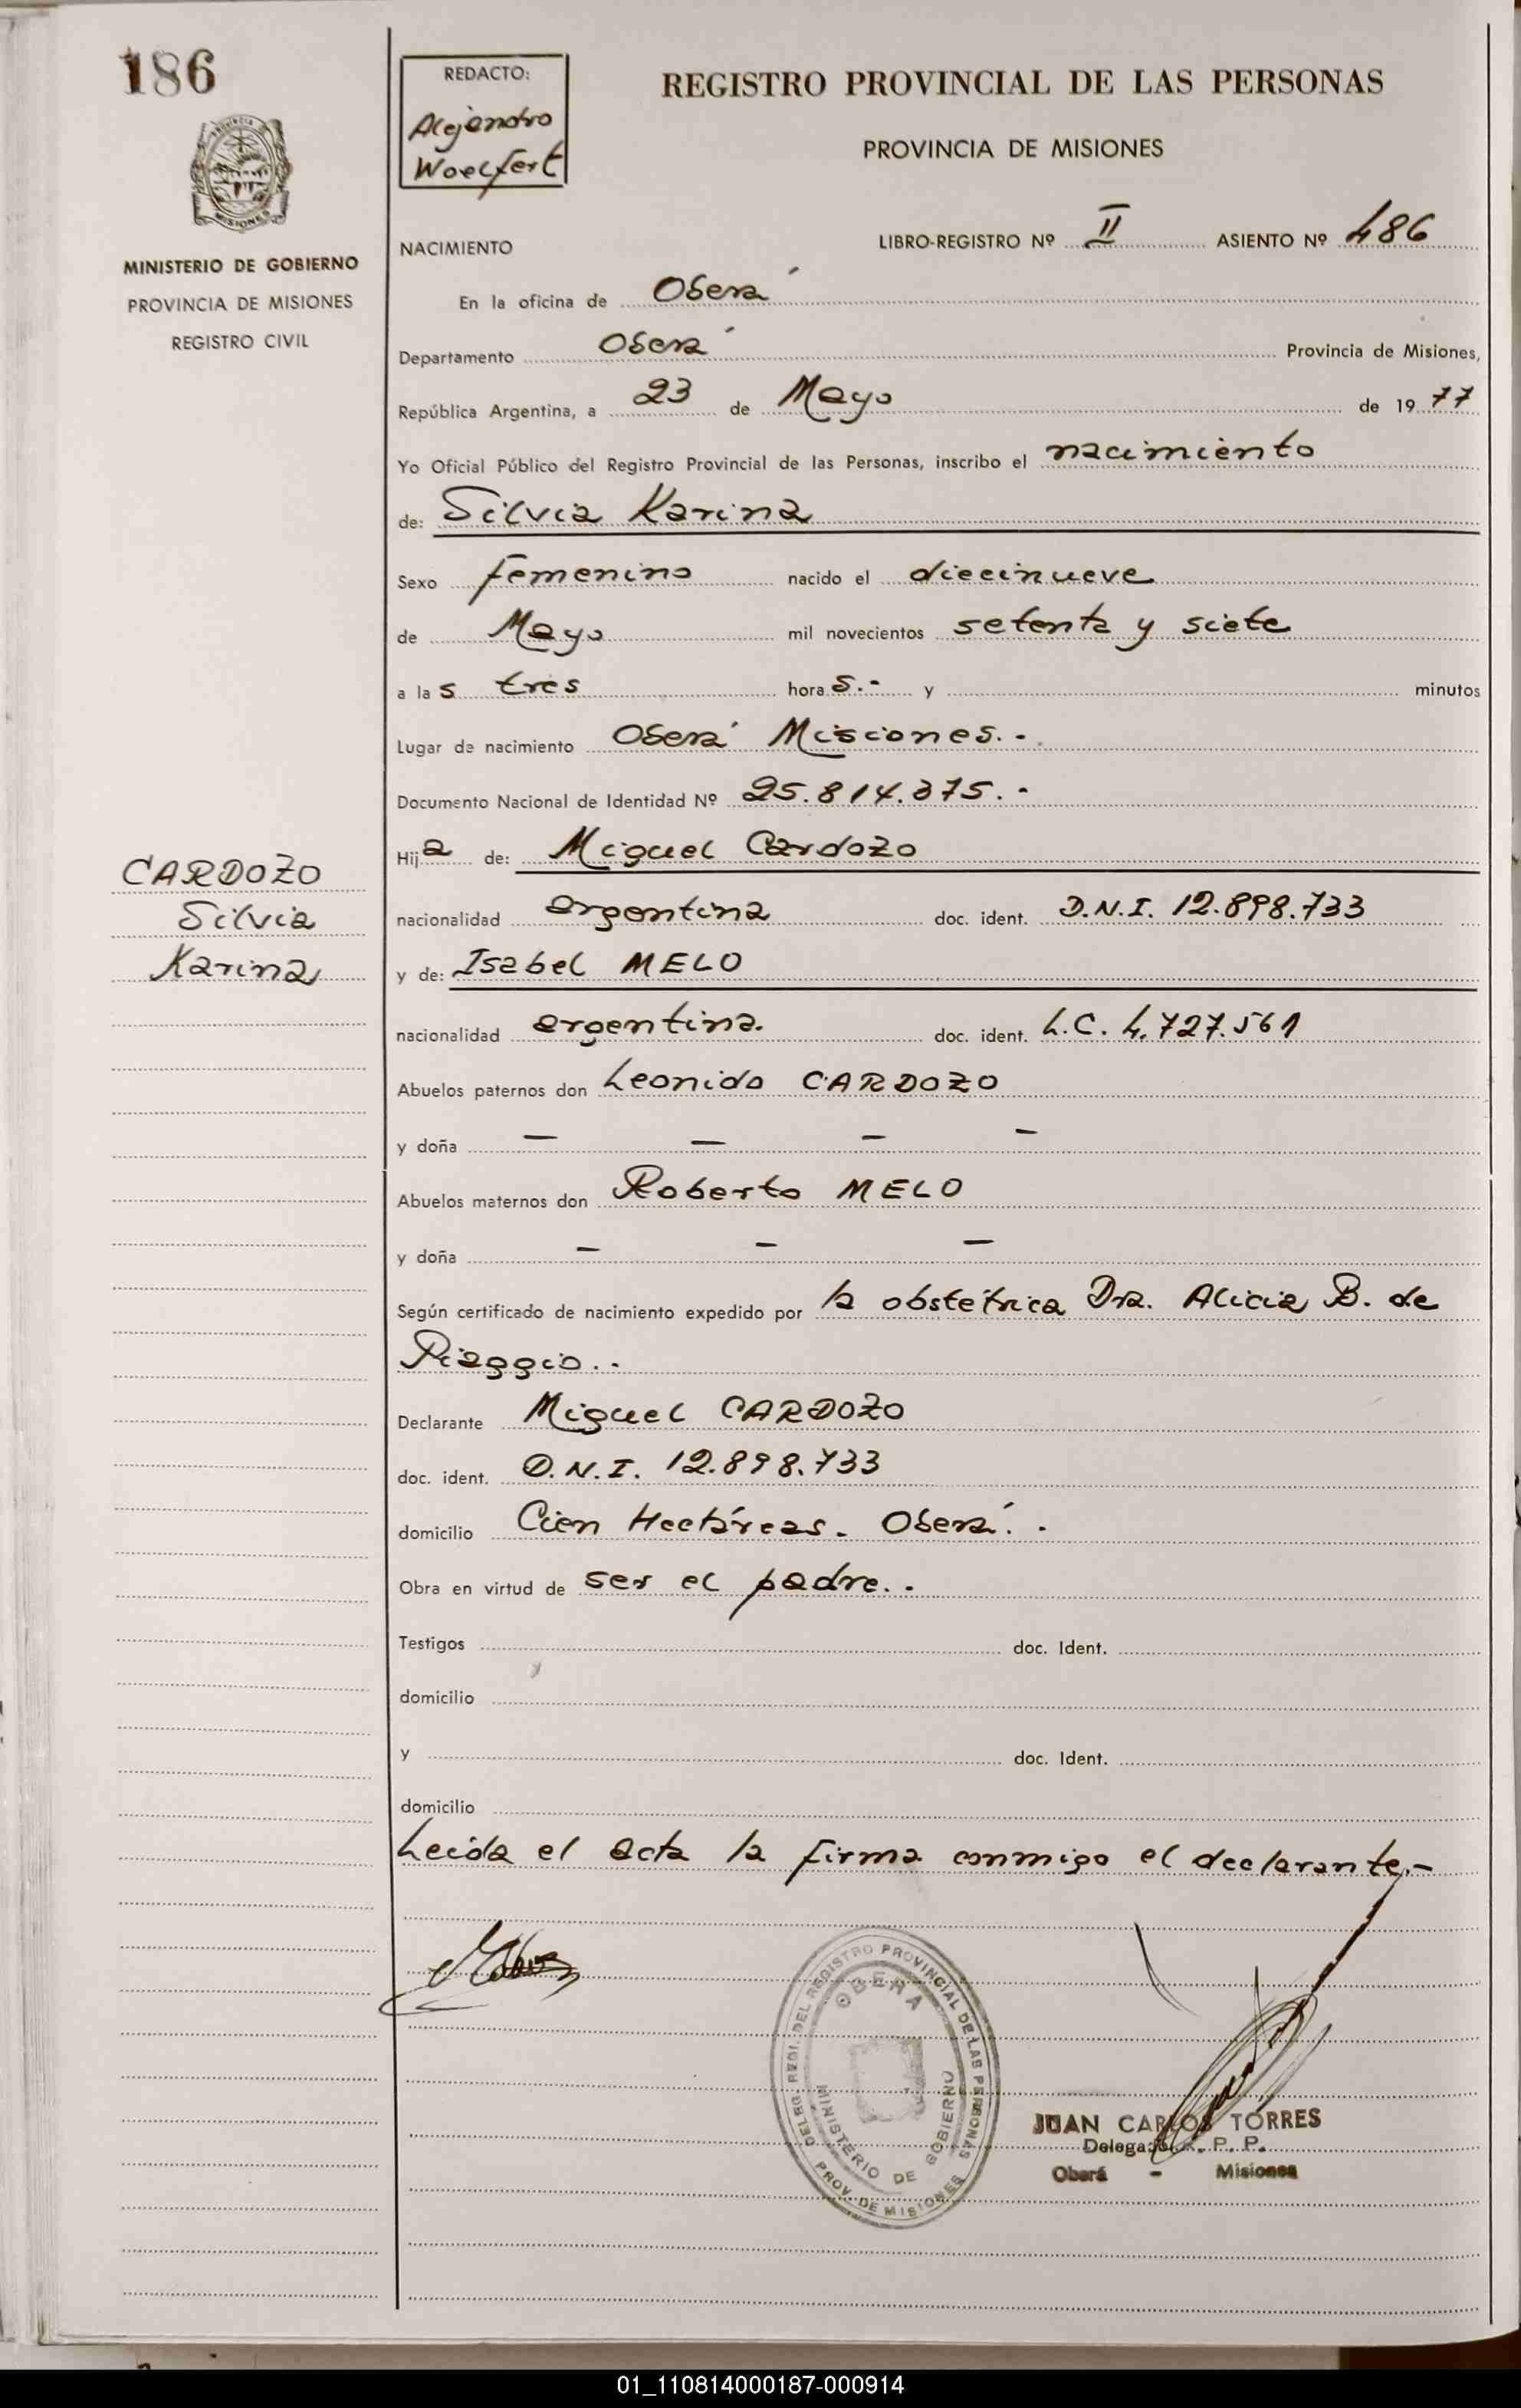 186
REDACTO:
Alejandro
Woelfert
REGISTRO PROVINCIAL DE LAS PERSONAS
PROVINCIA DE MISIONES
MISIONES
MINISTERIO DE GOBIERNO
PROVINCIA DE MISIONES
REGISTRO CIVIL
NACIMIENTO
LIBRO-REGISTRO Nº II ASIENTO Nº 486
En la oficina de Oberá
Departamento Oberá Provincia de Misiones,
República Argentina, a 23 de Mayo de 19 77
Yo Oficial Público del Registro Provincial de las Personas, inscribo el nacimiento
de: Silvia Karina
Sexo femenino nacido el diecinueve
de Mayo mil novecientos setenta y siete
a las tres horas.- y minutos
Lugar de nacimiento Oberá Misiones.-
Documento Nacional de Identidad Nº 25.814.375.-
Hija de: Miguel Cardozo
CARDOZO
Silvia
Karina
nacionalidad argentina doc. ident. D.N.I. 12.898.733
y de: Isabel MELO
nacionalidad argentina. doc. ident. L.C. 4.727.561
Abuelos paternos don Leonido CARDOZO
y doña — — — —
Abuelos maternos don Roberto MELO
y doña — — —
Según certificado de nacimiento expedido por la obstétrica Dra. Alicia B. de
Piaggio..
Declarante Miguel CARDOZO
doc. ident. D.N.I. 12.898.733
domicilio Cien Hectáreas. Oberá..
Obra en virtud de ser el padre..
Testigos doc. Ident.
domicilio
y doc. Ident.
domicilio
Leida el acta la firma conmigo el declarante.-
DELEG. REGI. DEL REGISTRO PROVINCIAL DE LAS PERSONAS
OBERA
MINISTERIO DE GOBIERNO
PROV. DE MISIONES
JUAN CARLOS TORRES
P. P.
Oberá - Misiones
01_110814000187-000914